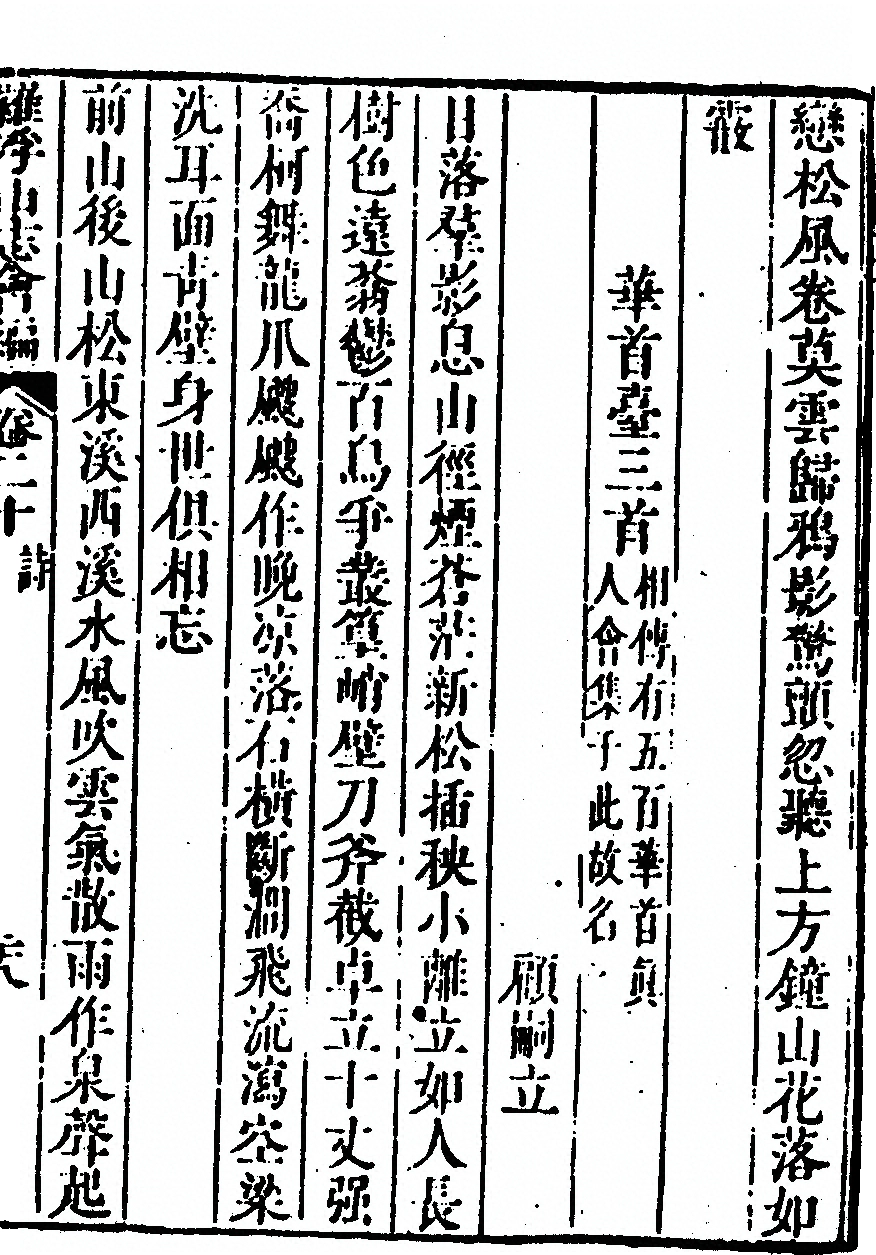 戀松風卷莫雲歸鴉影驚頭忽聽上方鐘山花落如
霰
華首臺三首相傳有五百華首眞
人會集于此故名
顧嗣立
日落羣影息山徑煙蒼茫新松插秧小離立如人長
樹色遠蓊鬱百鳥爭叢篁峭壁刀斧截卓立十丈强
喬柯舞龍爪颼颼作晚凉落石橫斷澗飛流瀉空梁
洗耳面青壁身世俱相忘
前山後山松東溪西溪水風吹雲氣散雨作泉聲起
羅浮山志會編
卷二十
詩